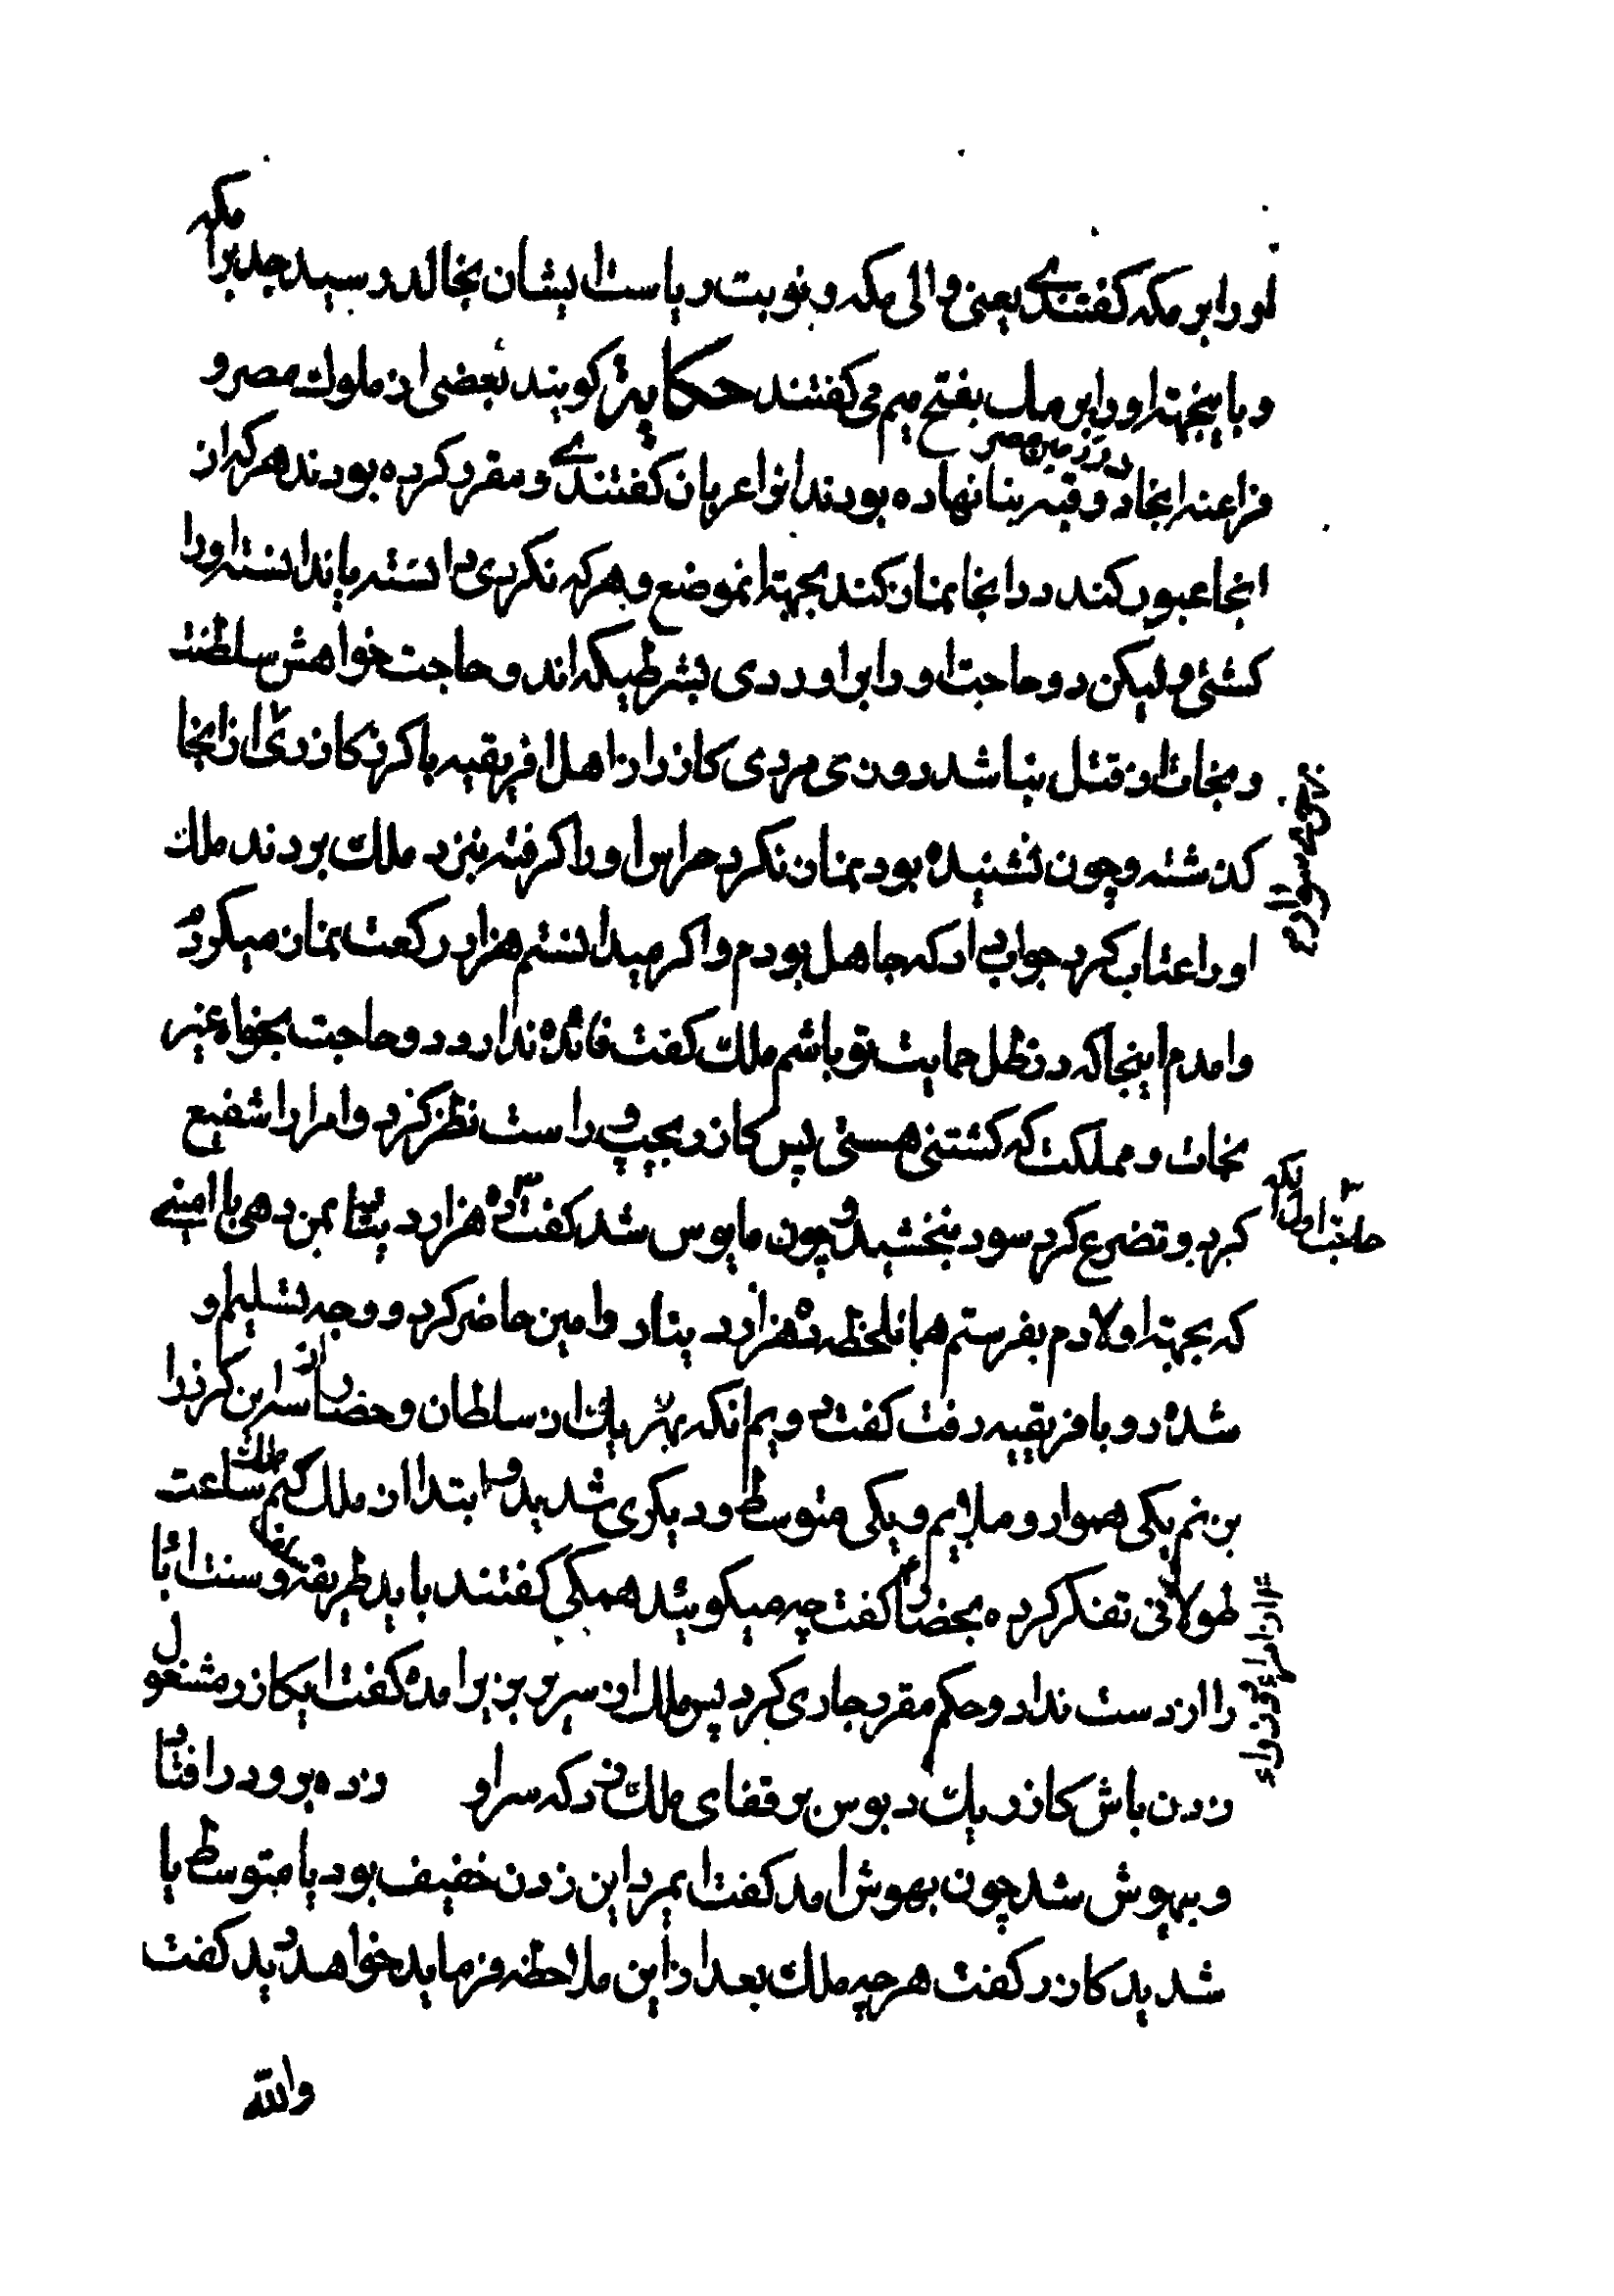 مکه
او را بر مکه کفتندی یعنی والی مکه و نوبت ریاست ایشان بخالد رسید جد برا
و باینجهته او را بر مك بفتح میم می کفتند حکایة کویند بعضی از ملوك مصر و
در زمین مصر
فراعنه انجا دو قبه بنا نهاده بودند انرا عریان کفتندی و مقرر کرده بودند هر که از
انجا عبور کند در انجا نماز کند بجهته انموضع و هر که نکردی دانسته یا ندانسته او را
کشتی و لیکن دو حاجت او را بر اوردی بشرطیکه اند و حاجت خواهش سلطنت
و نجات از قتل نباشد روزی مردی کازر از اهل افریقیه با کرد کازری از انجا
کذشته و چون نشنیده بود نماز نکرد حراس او را کرفته بنزد ملك بردند ملك
او را عتاب کرد جواب داد که جاهل بودم و اکر میدانستم هزار رکعت نماز میکردم
وامدم اینجا که در ظل حمایت تو باشم ملك کفت فائده ندارد دو حاجت بخواه غیر
نجات و مملکت که کشتنی هستی پس کازر بچپ و راست نظر کرد و امرا را شفیع
کرد و تضرع کرد سود نبخشید و چون مایوس شد کفت ده هزار دینار بمن دهی با امینی
حاجت اول انکه
که بجهته اولادم بفرستم همانلحظه ده هزار دینار و امین حاضر کرد و وجه تسلیم او
شده رو بافریقیه رفت کفت دویم انکه بهر یك از سلطان و حضار از سه این کرز را
بزنم یکی هموار و ملایم و یکی متوسط و دیکری شدید و ابتدا از ملك کنم ملك ساعت
طولانی تفکر کرده بحضار کفت چه میکوئید همکی کفتند باید طریقه و سنت ابا
را از دست نداد و حکم مقرر جاری کرد پس ملك از سریر بزیر امده کفت ایکازر مشغول
زدن باش کازر یك دبوس بر قفای ملك زد که سر او زده برو در افتاد
و بیهوش شد چون بهوش امد کفت ایمرد این زدن خفیف بود یا متوسط یا
شدید کازر کفت هر چه ملك بعد از این ملاحظه فرماید خواهد دید کفت
والله